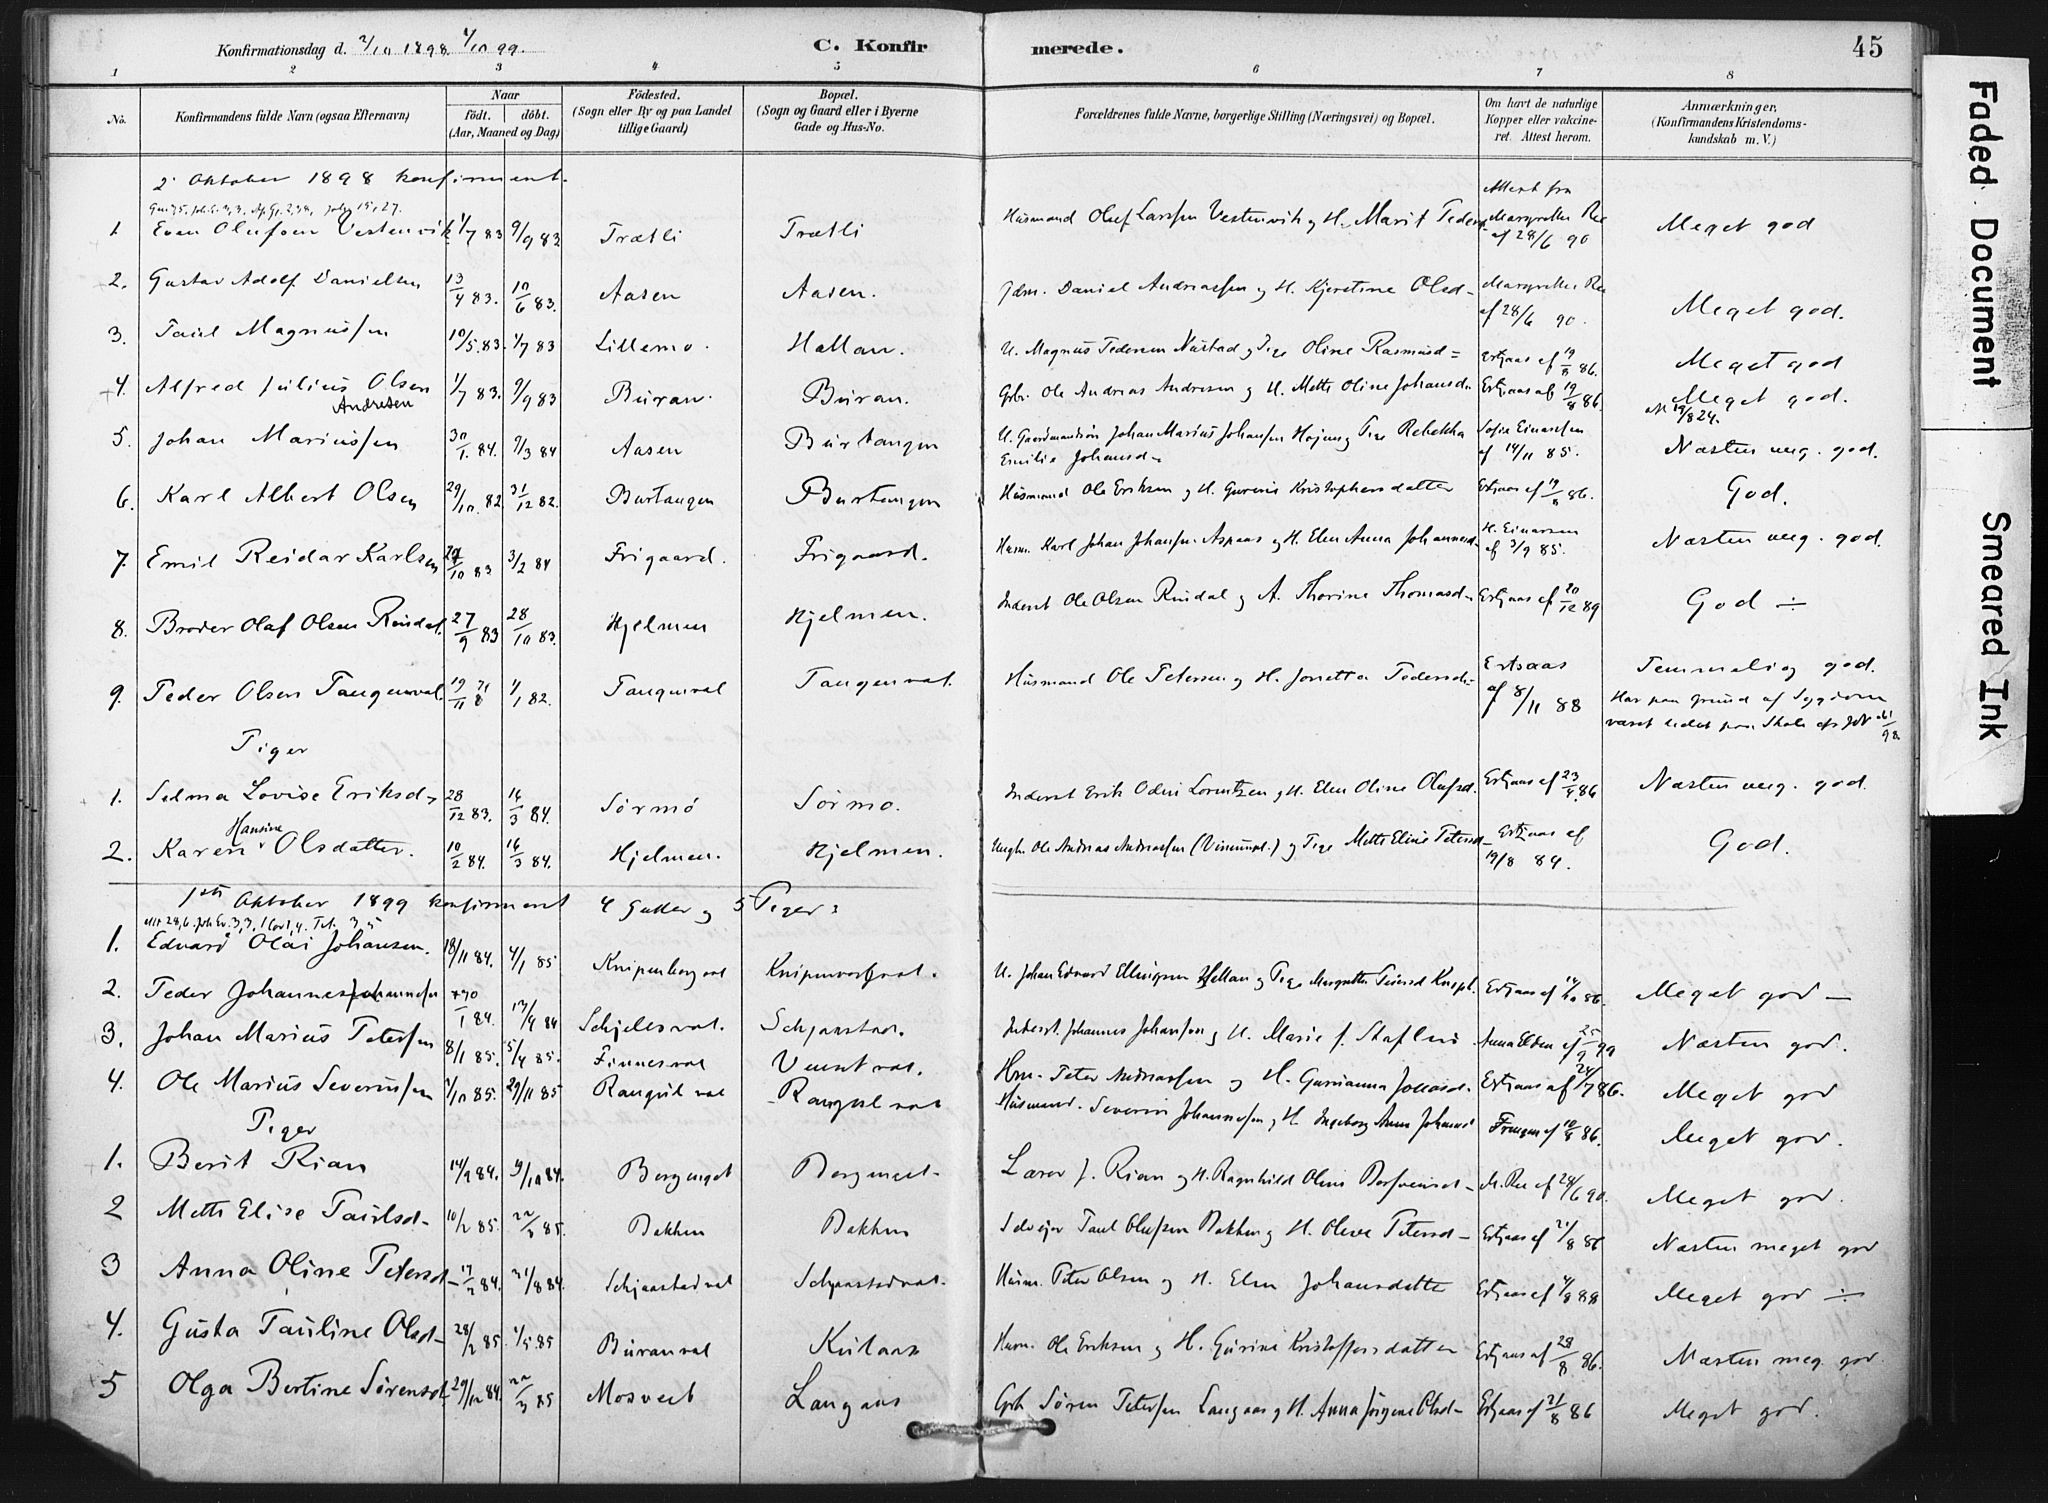 Konfirmationsdag d. 2/10 1898. 1/10 99.
C. Konfirmerede.
45
1 2 3 4 5 6 7 8
No.
Konfirmandens fulde Navn (ogsaa Efternavn)
Naar
født. døbt.
(Aar, Maaned og Dag)
Fødested.
(Sogn eller By og paa Landet
tillige Gaard)
Bopæl.
(Sogn og Gaard eller i Byerne
Gade og Hus-No.
Forældrenes fulde Navne, borgerlige Stilling (Næringsvei) og Bopæl.
Om havt de naturlige
Kopper eller vakcine-
ret. Attest herom.
Anmærkninger,
(Konfirmandens Kristendoms-
kundskab m. V.)
2. Oktober 1898 konfirmert.
1 Even Olufsen Vestervik 1/7 83 9/9 83 Trætli Trætli Husmand Oluf Larssen Vestenvik og H. Marit Pedersd. Attest fra Margrethe Ree af 28/6 90 Meget god
2. Gustav Adolf Danielsen 13/4 83. 10/6 83. Aasen Aasen. Daniel Andreassen og H. Kjerstine Olsd- Margrethe Ree af 28/6 90. Meget god.
3. Paul Magnussen 10/5 83. 1/7 83 Lillemo. Hallan. U. Magnus Pedersen Nustad og Pige Oline Rasmusd= Ertsaas af 19/8 86. Meget god
4. Alfred Julius Olsen 1/7 83. 9/9 83 Buran. Buran. Gbr. Ole Andreas Andresen og H. Mette Oline Johansd. Ertsaas af 19/8 86. Meget god.
Andresen
att 19/8 24.
5. Johan Mariussen 30/1. 84. 9/3 84 Aasen Burtangen U. Gaardmandsøn Johan Marius Johansen Hojem og Pige Rebekka Emilie Johansd- Sofie Einarssen af 14/11 85. Næsten meg. god.
6. Karl Albert Olsen 29/10. 82 31/12 82. Burtangen Burtangen Husmand Ole Eriksen og H. Gurine Kristophersdatter Ertsaas af 19/8 86. God.
7. Emil Reidar Karlsen 29/10 83 3/2 84 Frigaard. Frigaard. Husm. Karl Johan Johansen Aspaas og H. Elen Anna Johannesd- H. Einarsen af 3/9 85. Næsten meg. god.
8. Broder Olaf Olsen Rindal 27/9 83 28/10 83. Hjelmen Hjelmen. Inderst Ole Olsen Rindal og A. Thorine Thomasd- Ertsaas af 20/12 89 God ÷
9. Peder Olsen Tangenval 19/11 81 1/1 82. Tangenval Tangenval. Husmand Ole Petersen og H. Jonetta Pedersd- Ertsaas af 8/11 88 Temmelig god.
Har paa Grund af Sygdom
været lidet paa Skole
Piger
1. Selma Lovise Eriksd- 28/12 83. 16/3 84. Sørmo Sørmo. Inderst Erik Odin Lorentzen og H. Elen Oline Olufsd. Ertsaas af 23/9 86 Næsten meg. god.
2. Karen Hansine Olsdatter. 10/2 84. 16/3 84. Hjelmen. Hjelmen. Ungk. Ole Andreas Andreassen og Pige Mette Eline Petersd- Ertsaas af 19/8 84. God.
1ste Oktober 1899 konfirmeret 4 Gutter og 5 Piger:
1. Edvard Olai Johansen. 18/11 84. 4/1 85 Knipenborgval Knipenborgval. U. Johan Edvard Ellingsen Hellan og Pige Margrethe Ertsaas af 86. Meget god -
2. Peder Johannessen 30/1 84. 13/4 84 Schjelesval. Schjaastad. Inderst. Johannes Johansen og H. Marie Anna Elden af 25/9 99 Næsten god.
3. Johan Marius Petersen 8/1 85. 5/4 85. Finnesval Hm. Peter Andreassen og H. Gurianna Ertsaas af 24/7 86. Meget god
4. Ole Marius Severinssen 7/10 85. 29/11 85 Rangulval Rangulval Husmand. Severin Johannessen og H. Ingeborg Anna Johannesd Frangen af 10/9 86. Meget god.
Piger
1. Berit Rian 14/9 84. 19/10 84. Bergenget Lærer J. Rian og H. Ragnhild Oline M. Ree af 28/6 90. Meget god.
2 Mette Elise Paulsd- 10/2 85. 22/3 85. Bakken Bakken Selveier Paul Olufsen Bakken og H. Oleve Petersd- Ertsaas af 21/8 86 Næsten meget god
3 Anna Oline Petersd- 17/2 84. 31/8 84. Schjaastadval Schjaastadval. Husm. Peter Olsen og H. Elen Johansdatter Ertsaas af 4/8 88 Meget god ÷
4. Gusta Pauline Olsd- 28/2 85. 1/5. 85 Buranval Husm. Ole Eriksen og H. Gurine Kristoffersdatter Ertsaas af 28/8 86. Næsten meg. god.
5 Olga Bertine Sørensd- 29/12 84. 22/3 85 Mosveet Langaas Gbr. Søren Petersen Langaas og H. Anna Jørgine Olsd- Ertsaas af 21/8 86 Meget god.
Faded Document
Smeared Ink